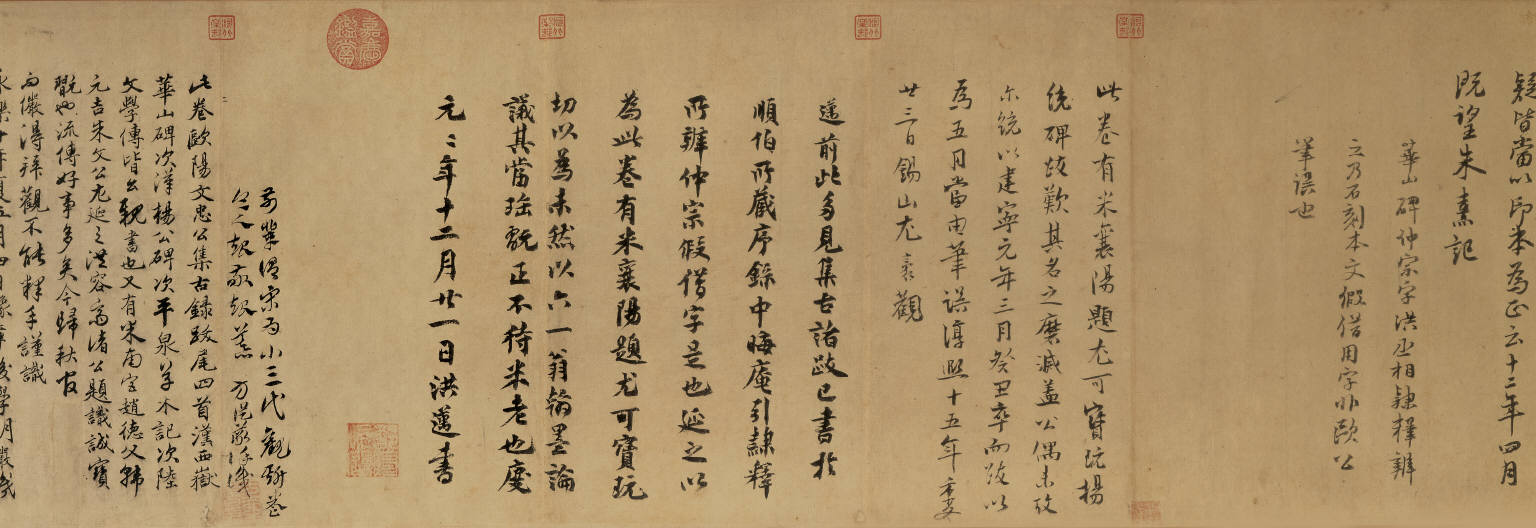 疑皆當以印本為正云十二年四月
既望朱熹記
華山碑仲宗字洪丞相隸釋辨
之乃石刻本文假借用字非歐公
筆誤也
此卷有米襄陽題尤可寶玩楊
統碑故歎其名之磨滅蓋公偶未攷
尔統以建寧元年三月癸丑卒而跋以
為五月當由筆誤淳熙十五年
廿三日錫山尤袤觀
邁前此多見集古諸跋已書於
順伯所藏序錄中晦庵引隸釋
所辨仲宗假借字是也延之以
為此卷有米襄陽題尤可寶玩
切以為未然以六一翁翰墨論
議其當珍翫正不待米老也慶
元二年十二月廿一日洪邁書
此卷歐陽文忠公集古錄跋尾四首漢西嶽
華山碑次漢楊公碑次平泉草木記次陸
文學傳皆公親書也又有米南宮趙德父韓
元吉朱文公尤延之洪容齋諸公題識誠寶
翫也流傳好事多矣今歸秋官
向儼得拜觀不能釋手謹識